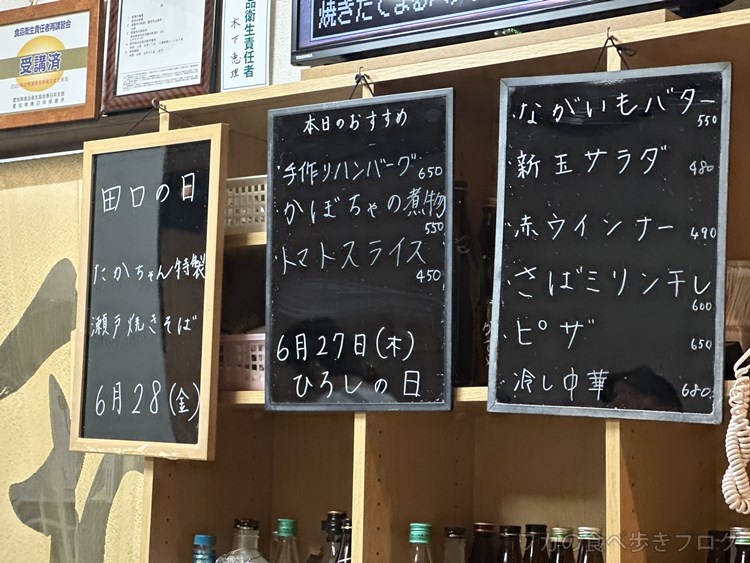 食品衛生責任者再講習会
受講済
品衛生責任者
木下恵理
田口の日
たかちゃん特製
瀬戸焼きそば
6月28(金)
本日のおすすめ
手作りハンバーグ650
かぼちゃの煮物
550
トマトスライス
450
6月27日(木)
ひろしの日
ながいもバター
550
新玉サラダ 480
赤ウインナー 490
さばミリン干し
600
ピザ 650
冷し中華 680
の食べ歩きブログ